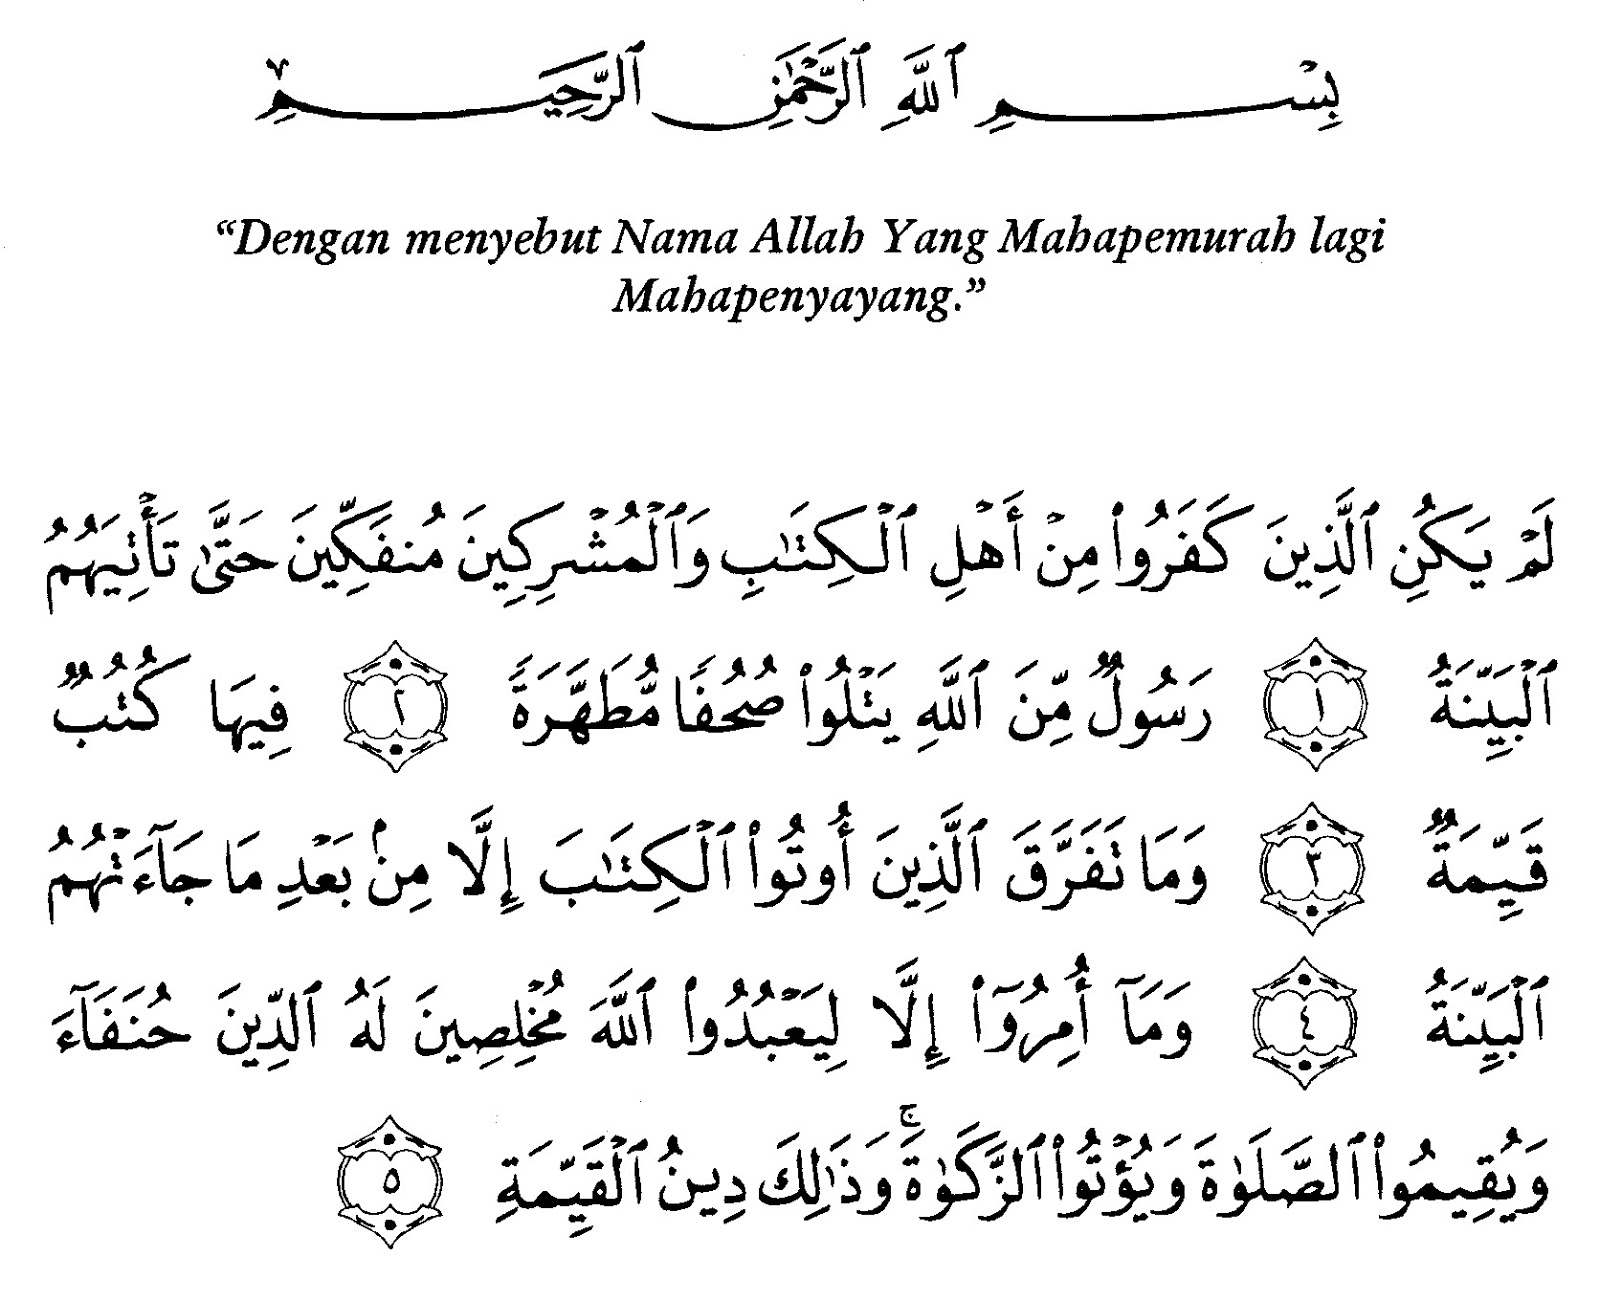 بِسْمِ ٱللَّهِ ٱلرَّحْمَٰنِ ٱلرَّحِيمِ
“Dengan menyebut Nama Allah Yang Mahapemurah lagi
Mahapenyayang.”
لَمْ يَكُنِ ٱلَّذِينَ كَفَرُوا۟ مِنْ أَهْلِ ٱلْكِتَٰبِ وَٱلْمُشْرِكِينَ مُنفَكِّينَ حَتَّىٰ تَأْتِيَهُمُ
ٱلْبَيِّنَةُ ١ رَسُولٌ مِّنَ ٱللَّهِ يَتْلُوا۟ صُحُفًا مُّطَهَّرَةً ٢ فِيهَا كُتُبٌ
قَيِّمَةٌ ٣ وَمَا تَفَرَّقَ ٱلَّذِينَ أُوتُوا۟ ٱلْكِتَٰبَ إِلَّا مِنۢ بَعْدِ مَا جَآءَتْهُمُ
ٱلْبَيِّنَةُ ٤ وَمَآ أُمِرُوٓا۟ إِلَّا لِيَعْبُدُوا۟ ٱللَّهَ مُخْلِصِينَ لَهُ ٱلدِّينَ حُنَفَآءَ
وَيُقِيمُوا۟ ٱلصَّلَوٰةَ وَيُؤْتُوا۟ ٱلزَّكَوٰةَ ۚ وَذَٰلِكَ دِينُ ٱلْقَيِّمَةِ ٥